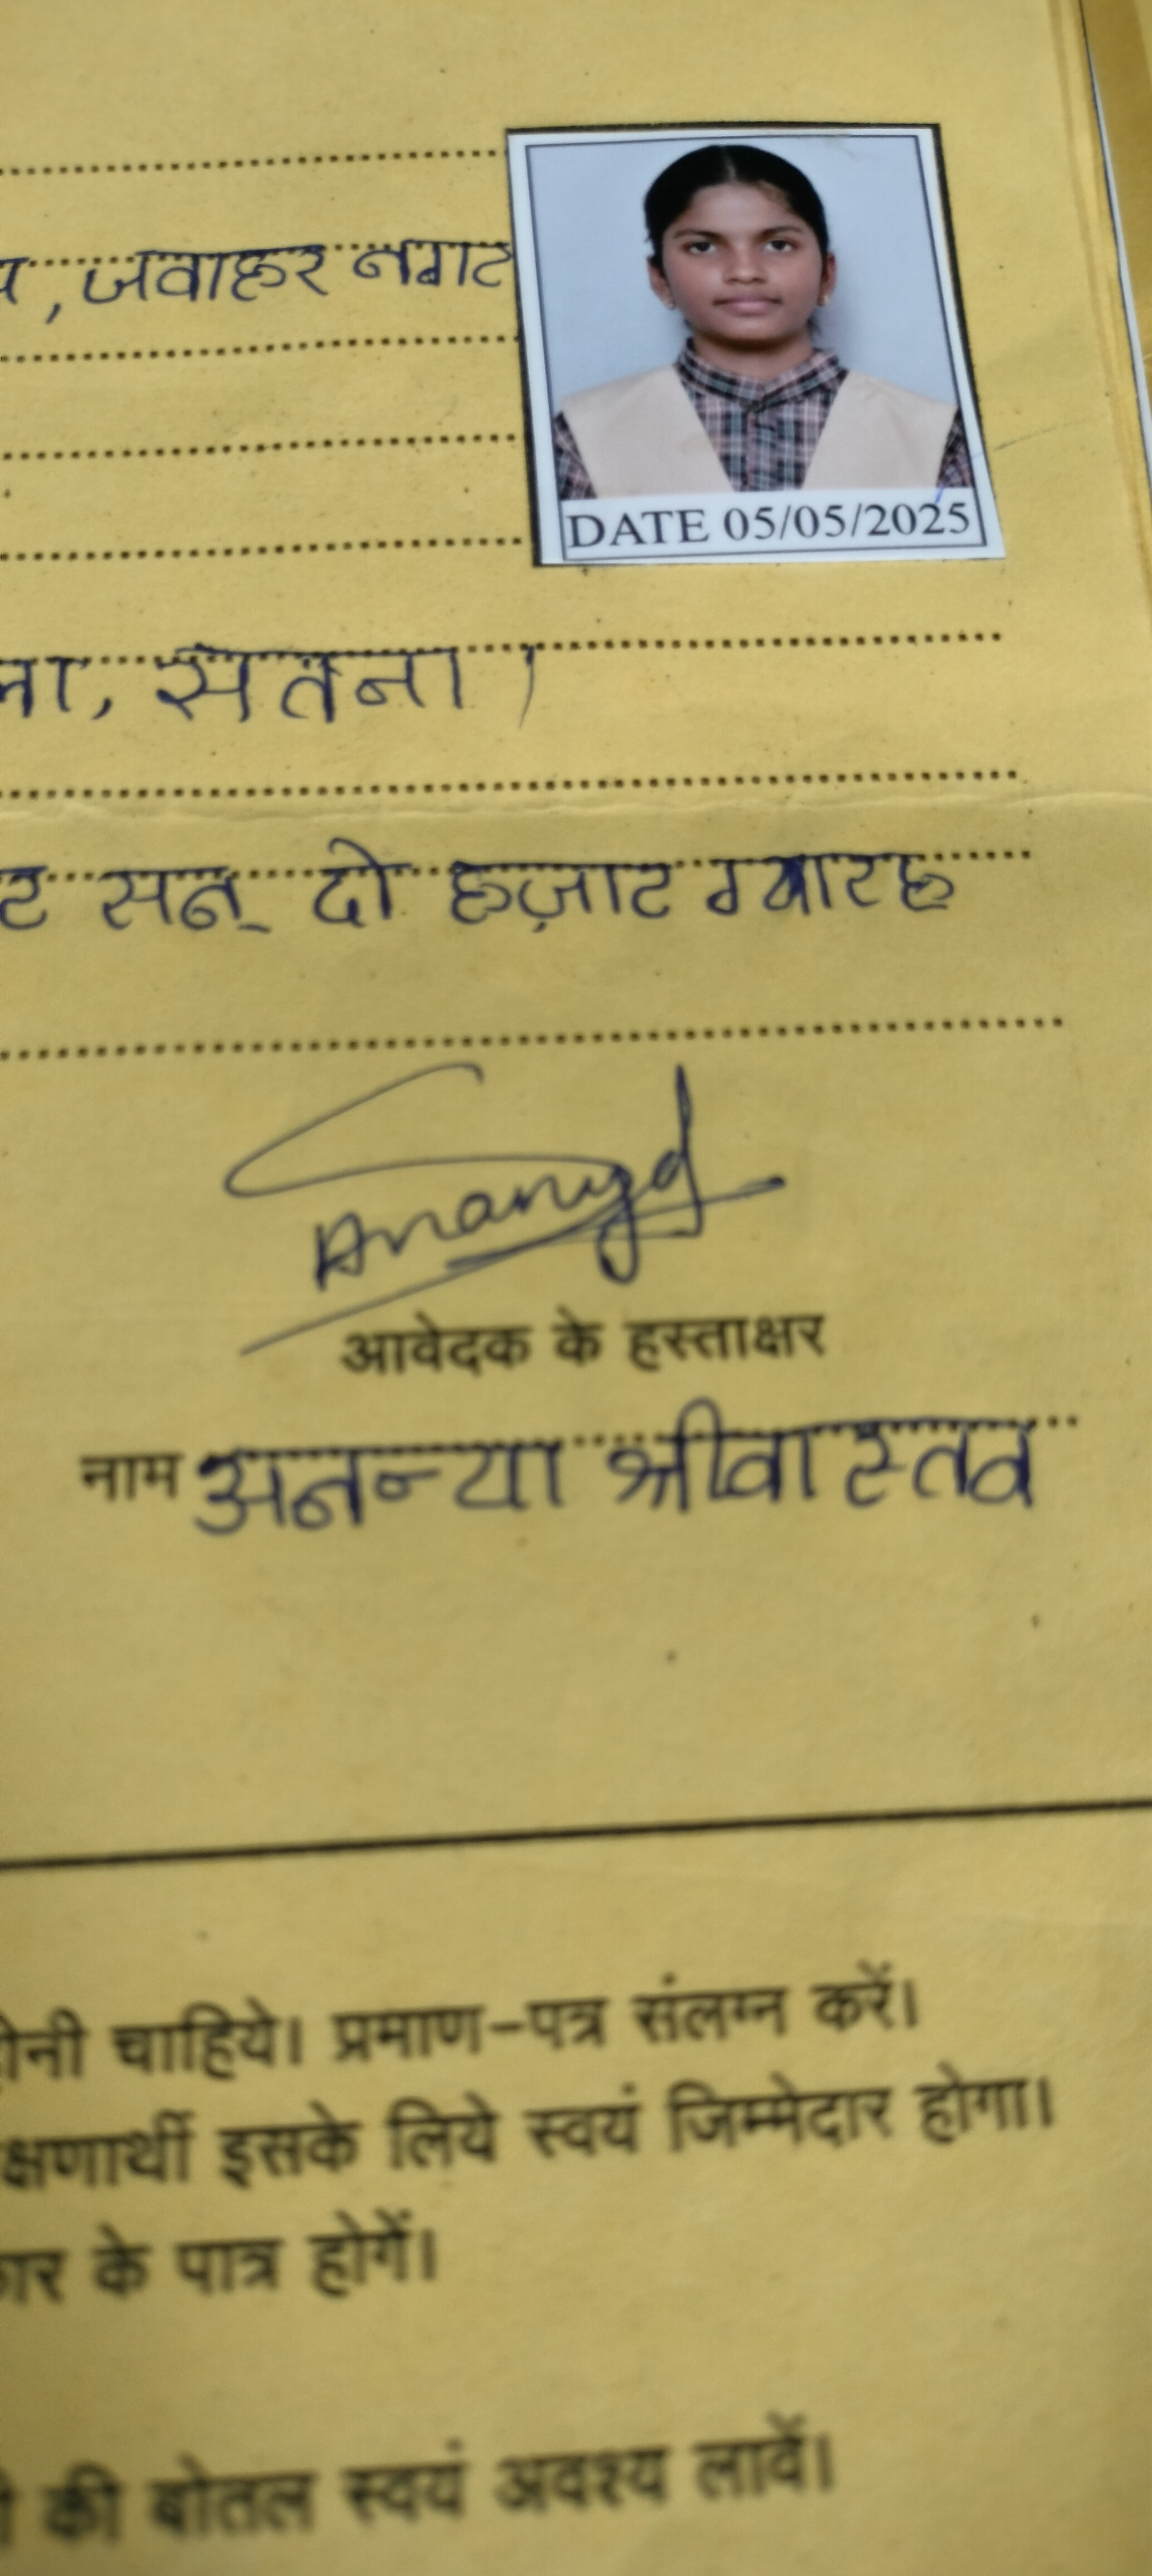 , जवाहर नगर
DATE 05/05/2025
सतना।
सन् दो हज़ार ग्यारह
Ananya
आवेदक के हस्ताक्षर
नाम अनन्या श्रीवास्तव
चाहिये। प्रमाण-पत्र संलग्न करें।
इसके लिये स्वयं जिम्मेदार होगा।
के पात्र होगें।
की बोतल स्वयं अवश्य लावें।